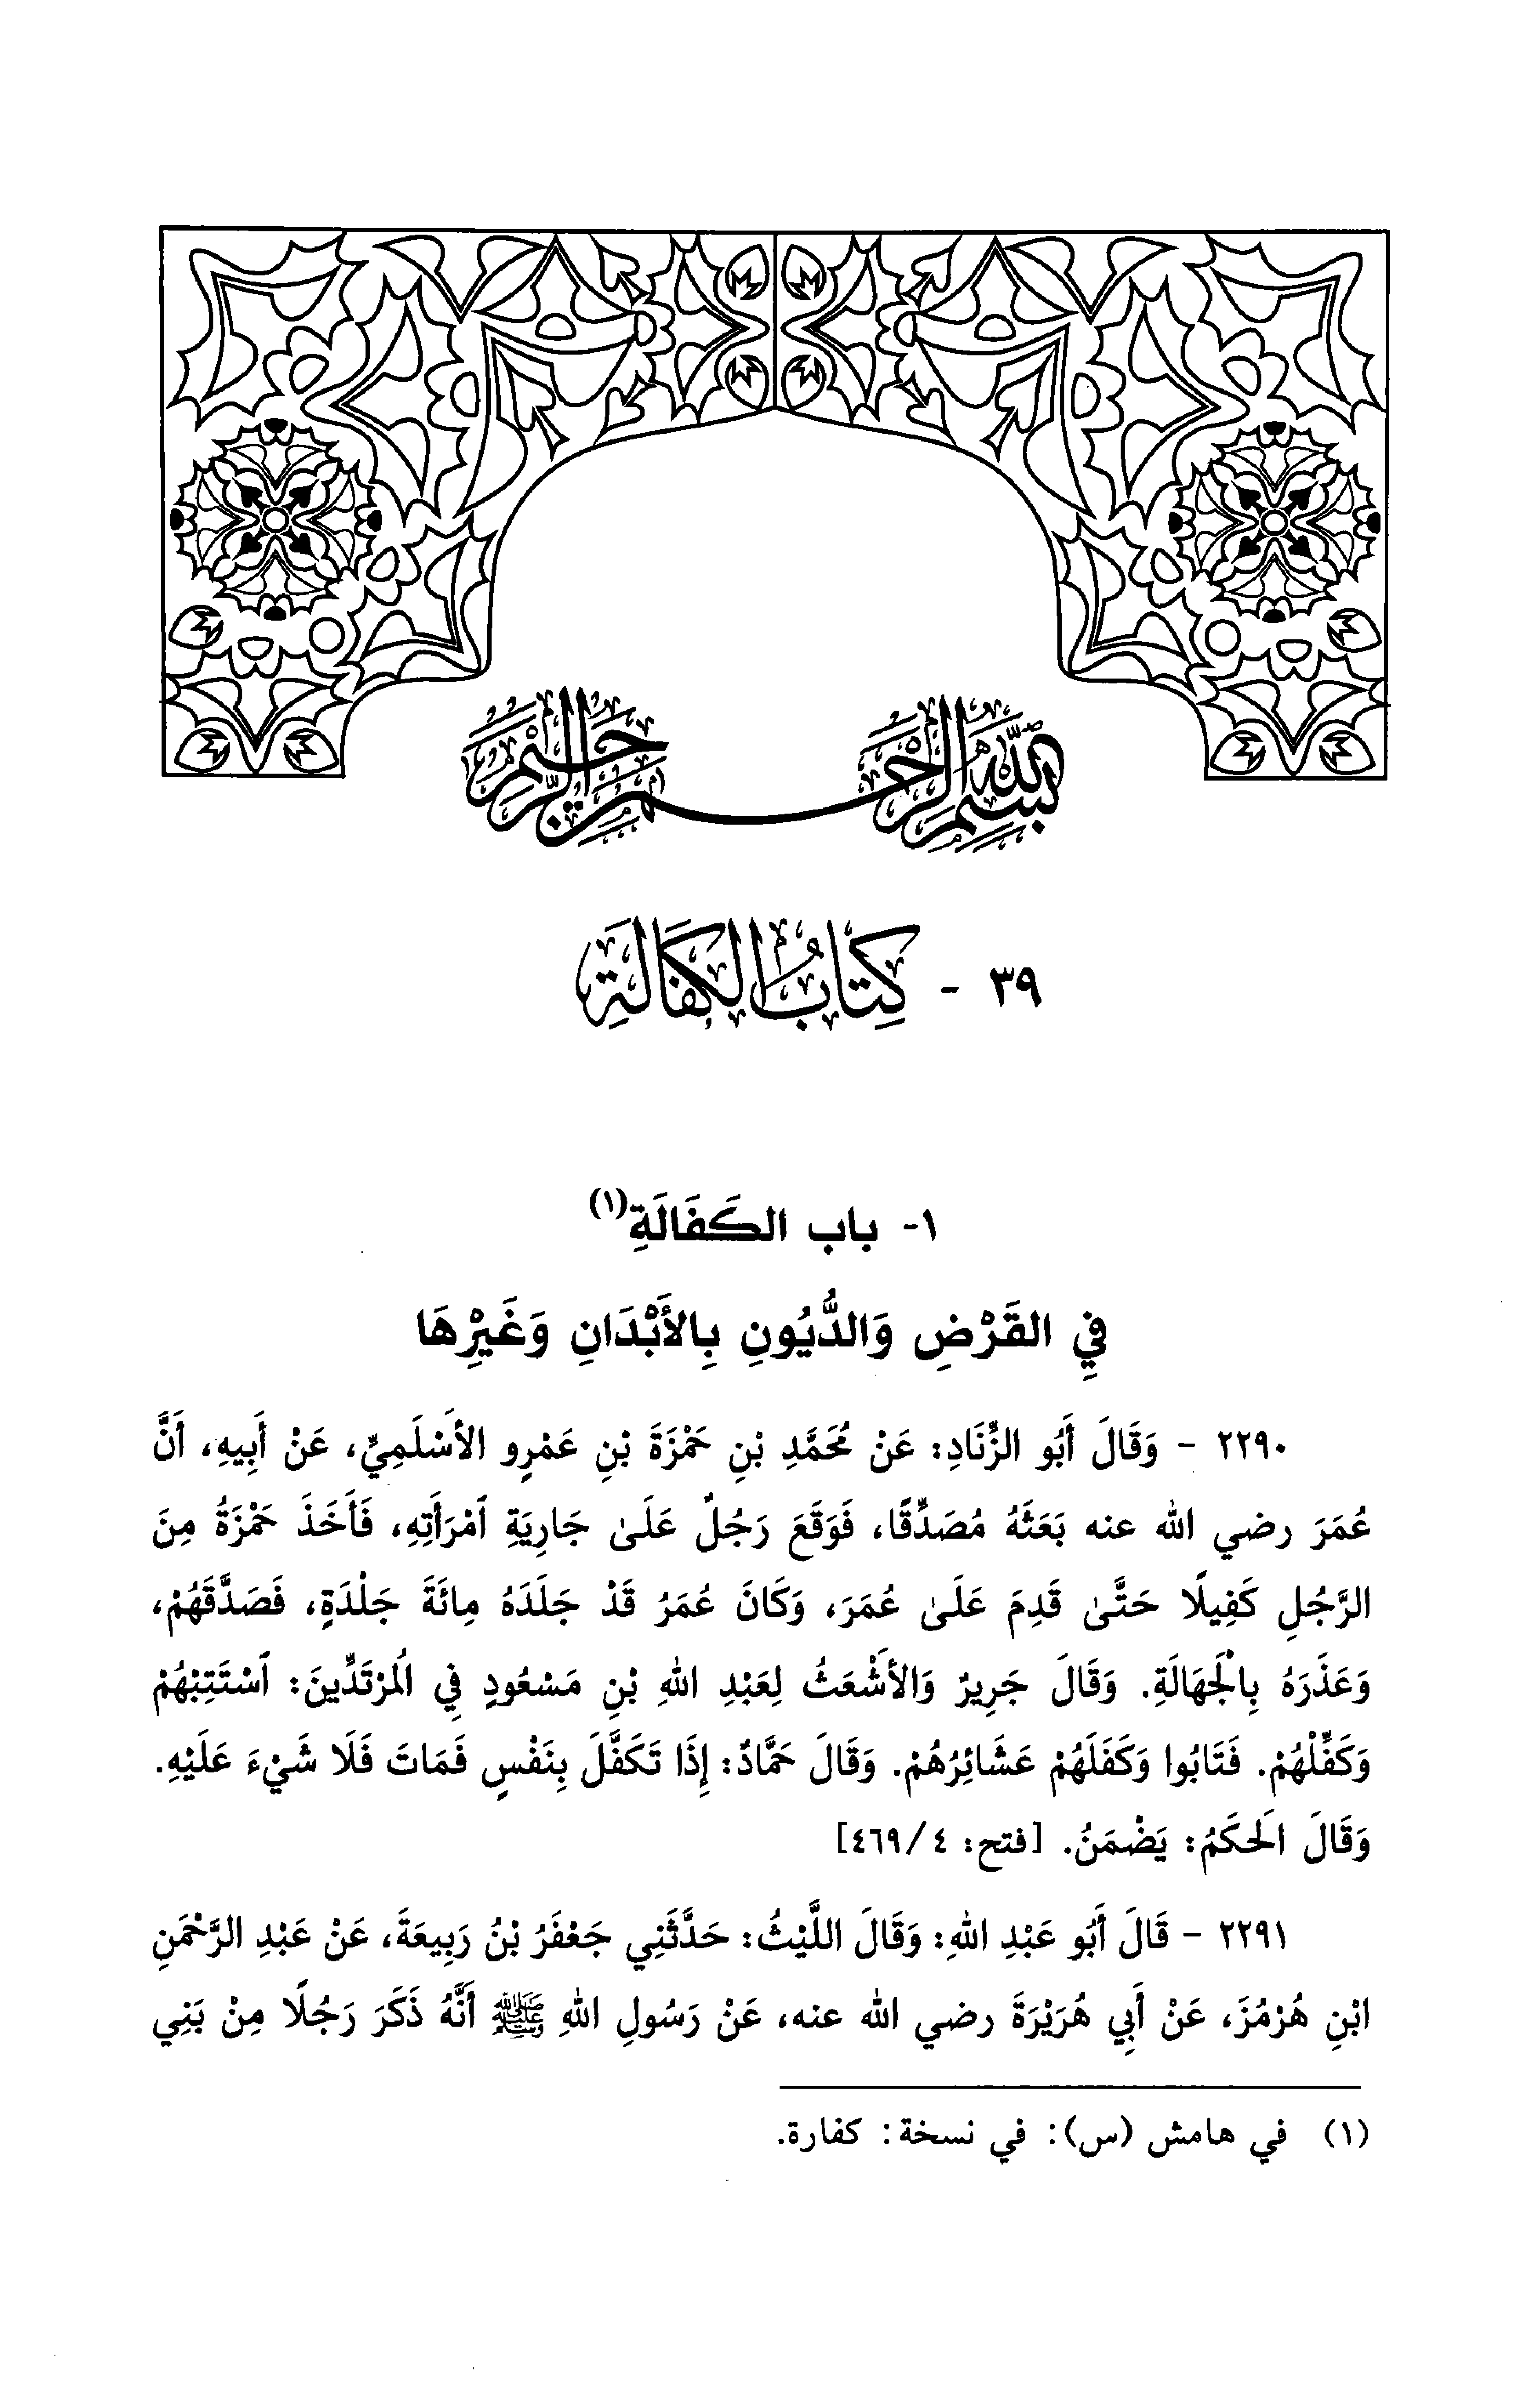 بسم الله الرحمن الرحيم
٣٩ - كِتَابُ الكَفَالَةِ
١- باب الكَفَالَةِ(١)
فِي القَرْضِ وَالدُّيُونِ بِالأَبْدَانِ وَغَيْرِهَا
٢٢٩٠ - وَقَالَ أَبُو الزِّنَادِ: عَنْ مُحَمَّدِ بْنِ حَمْزَةَ بْنِ عَمْرٍو الأَسْلَمِيِّ، عَنْ أَبِيهِ، أَنَّ
عُمَرَ رضي الله عنه بَعَثَهُ مُصَدِّقًا، فَوَقَعَ رَجُلٌ عَلَىٰ جَارِيَةِ ٱمْرَأَتِهِ، فَأَخَذَ حَمْزَةُ مِنَ
الرَّجُلِ كَفِيلًا حَتَّىٰ قَدِمَ عَلَىٰ عُمَرَ، وَكَانَ عُمَرُ قَدْ جَلَدَهُ مِائَةَ جَلْدَةٍ، فَصَدَّقَهُمْ،
وَعَذَرَهُ بِالْجَهَالَةِ. وَقَالَ جَرِيرٌ وَالأَشْعَثُ لِعَبْدِ اللهِ بْنِ مَسْعُودٍ فِي الْمُرْتَدِّينَ: ٱسْتَتِبْهُمْ
وَكَفِّلْهُمْ. فَتَابُوا وَكَفَلَهُمْ عَشَائِرُهُمْ. وَقَالَ حَمَّادٌ: إِذَا تَكَفَّلَ بِنَفْسٍ فَمَاتَ فَلَا شَيْءَ عَلَيْهِ.
وَقَالَ الَحكَمُ: يَضْمَنُ. [فتح: ٤/ ٤٦٩]
٢٢٩١ - قَالَ أَبُو عَبْدِ اللهِ: وَقَالَ اللَّيْثُ: حَدَّثَنِي جَعْفَرُ بْنُ رَبِيعَةَ، عَنْ عَبْدِ الرَّحْمَنِ
ابْنِ هُرْمُزَ، عَنْ أَبِي هُرَيْرَةَ رضي الله عنه، عَنْ رَسُولِ اللهِ ﷺ أَنَّهُ ذَكَرَ رَجُلًا مِنْ بَنِي
(١) في هامش (س): في نسخة: كفارة.